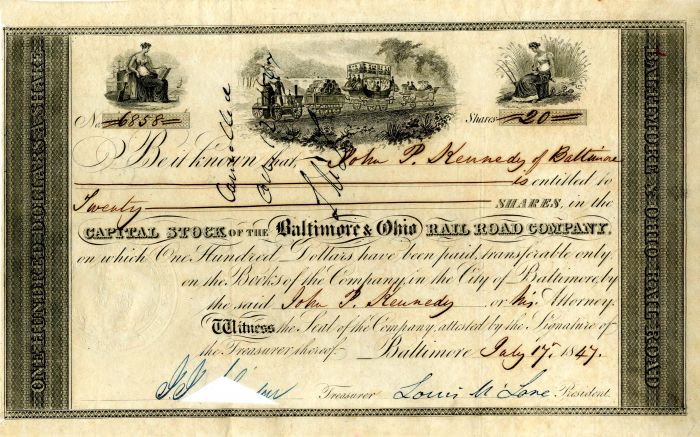 No. 6858
Shares 20
Cancelled
Be it known that John P. Kennedy of Baltimore
is entitled to
Twenty SHARES, in the
CAPITAL STOCK OF THE Baltimore & Ohio RAIL ROAD COMPANY,
on which One Hundred Dollars have been paid, transferable only
on the Books of the Company, in the City of Baltimore, by
the said John P. Kennedy or his Attorney.
Witness the Seal of the Company, attested by the Signature of
the Treasurer thereof. Baltimore July 17, 1847.
Treasurer Louis McLane President.
ONE HUNDRED DOLLARS A SHARE
BALTIMORE & OHIO RAIL ROAD